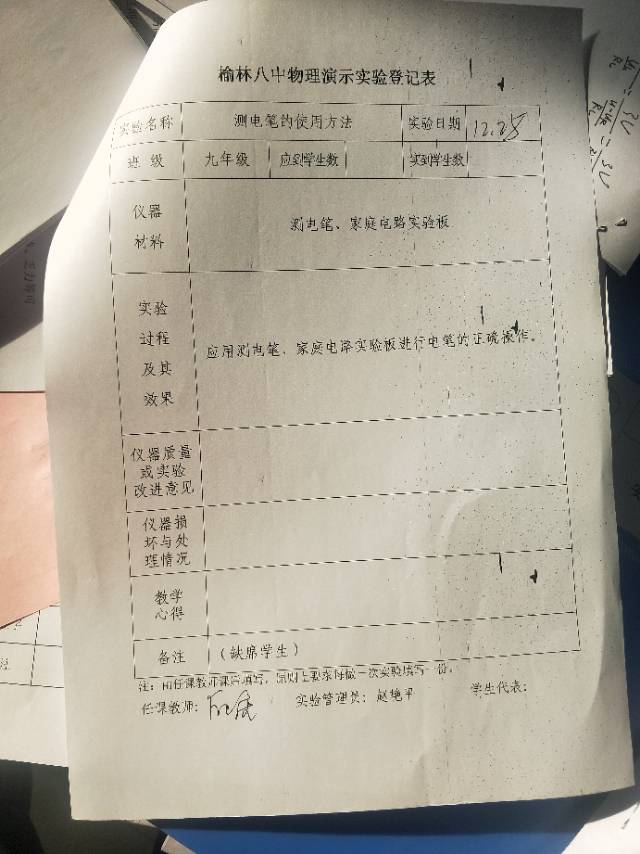 榆林八中物理演示实验登记表
实验名称 测电笔的使用方法 实验日期 12.25
班 级 九年级 应到学生数 实到学生数
仪器
材料
测电笔、家庭电路实验板
实验
过程
及其
效果
应用测电笔、家庭电路实验板进行电笔的正确操作。
仪器质量
或实验
改进意见
仪器损
坏与处
理情况
教学
心得
备注 (缺席学生)
注:由任课教师课后填写,原则上要求每做一次实验填写一份。
任课教师: 实验管理员:赵艳平 学生代表: